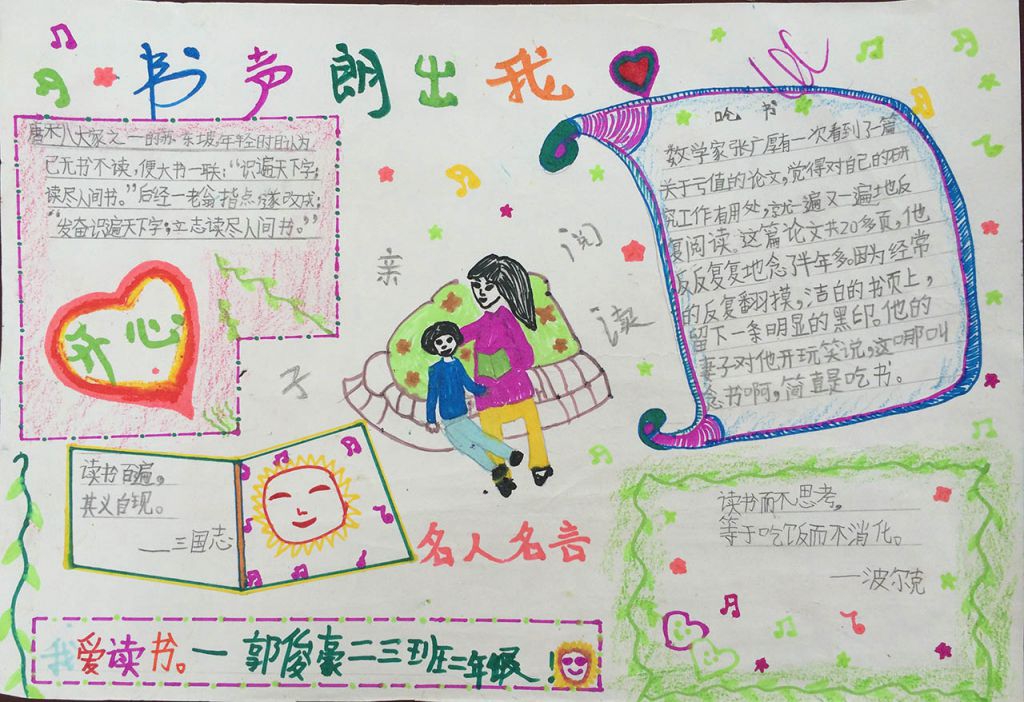 书声朗出我
唐宋八大家之一的苏东坡,年轻时自认为
已无书不读,便大书一联:“识遍天下字;
读尽人间书。”后经一老翁指点,遂改成:
“发奋识遍天下字;立志读尽人间书。”
开心
亲子阅读
吃书
数学家张广厚有一次看到了一篇
关于亏值的论文,觉得对自己的研
究工作有用处,就一遍又一遍地反
复阅读。这篇论文共20多页,他
反反复复地念了半年多。因为经常
的反复翻摸,洁白的书页上,
留下一条明显的黑印。他的
妻子对他开玩笑说,这哪叫
念书啊,简直是吃书。
读书百遍,
其义自现。
——三国志
名人名言
读书而不思考,
等于吃饭而不消化。
——波尔克
我爱读书。一郭俊豪二三班三年级!